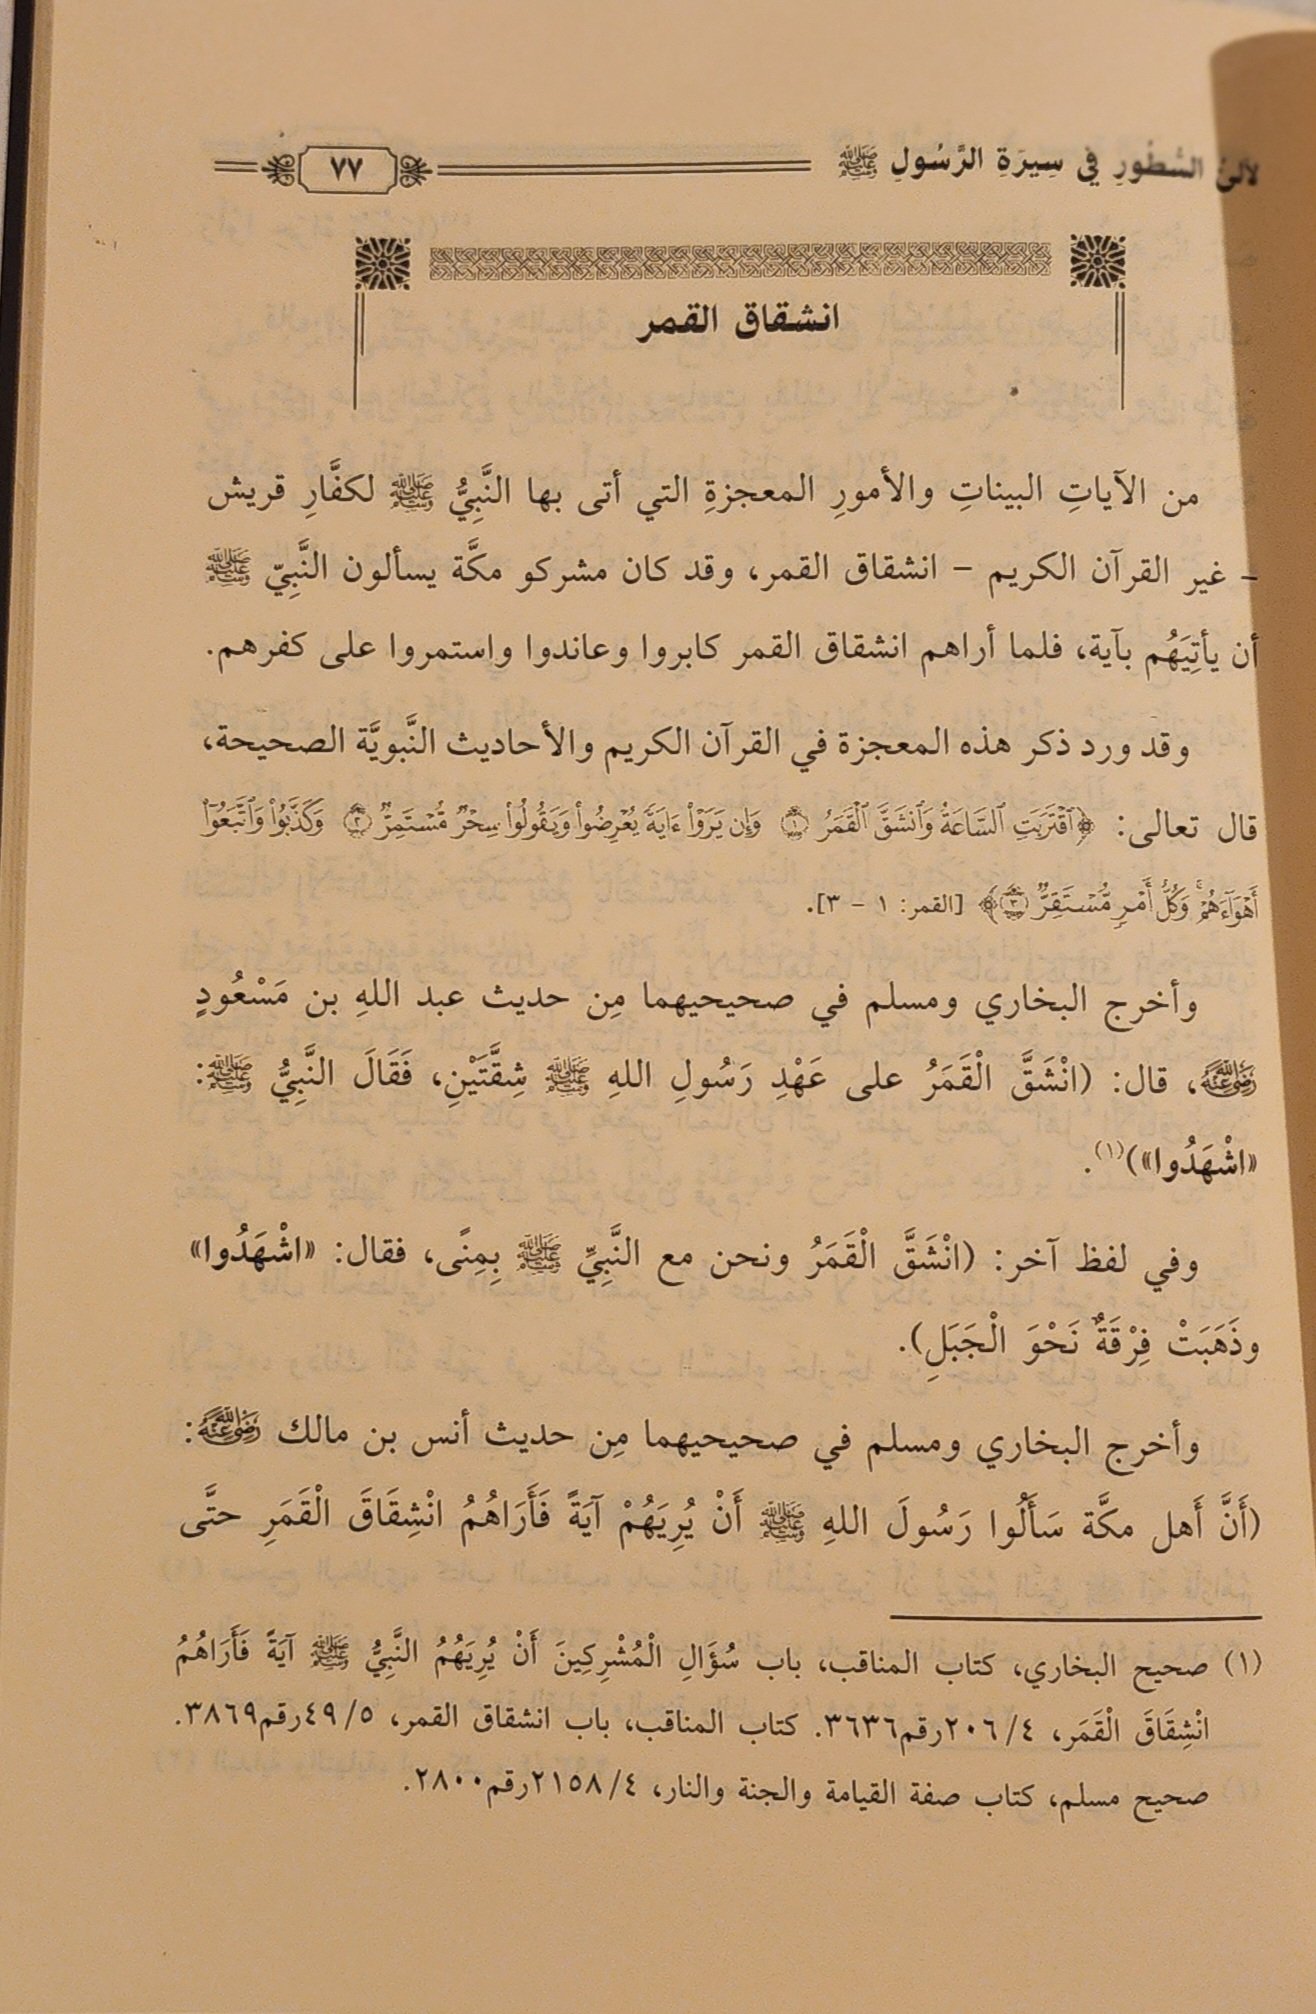 لآلئ السُّطُورِ فِي سِيرَةِ الرَّسُولِ ﷺ ٧٧
انشقاق القمر
من الآياتِ البيناتِ والأمورِ المعجزةِ التي أتى بها النَّبِيُّ ﷺ لكفَّارِ قريش
- غير القرآن الكريم - انشقاق القمر، وقد كان مشركو مكَّة يسألون النَّبِيّ ﷺ
أن يأتِيَهُم بآية، فلما أراهم انشقاق القمر كابروا وعاندوا واستمروا على كفرهم.
وقد ورد ذكر هذه المعجزة في القرآن الكريم والأحاديث النَّبويَّة الصحيحة،
قال تعالى: ﴿ٱقْتَرَبَتِ ٱلسَّاعَةُ وَٱنشَقَّ ٱلْقَمَرُ ۝١ وَإِن يَرَوْا۟ ءَايَةً يُعْرِضُوا۟ وَيَقُولُوا۟ سِحْرٌ مُّسْتَمِرٌّ ۝٢ وَكَذَّبُوا۟ وَٱتَّبَعُوٓا۟
أَهْوَآءَهُمْ ۚ وَكُلُّ أَمْرٍ مُّسْتَقِرٌّ ۝٣﴾ [القمر: ١ - ٣].
وأخرج البخاري ومسلم في صحيحيهما مِن حديث عبد اللهِ بن مَسْعُودٍ
رَضِيَ اللهُ عَنْهُ، قال: (انْشَقَّ الْقَمَرُ على عَهْدِ رَسُولِ اللهِ ﷺ شِقَّتَيْنِ، فَقَالَ النَّبِيُّ ﷺ:
«اشْهَدُوا»)(١).
وفي لفظ آخر: (انْشَقَّ الْقَمَرُ ونحن مع النَّبِيِّ ﷺ بِمِنًى، فقال: «اشْهَدُوا»
وذَهَبَتْ فِرْقَةٌ نَحْوَ الْجَبَلِ).
وأخرج البخاري ومسلم في صحيحيهما مِن حديث أنس بن مالك رَضِيَ اللهُ عَنْهُ:
(أَنَّ أَهل مكَّة سَأَلُوا رَسُولَ اللهِ ﷺ أَنْ يُرِيَهُمْ آيَةً فَأَرَاهُمُ انْشِقَاقَ الْقَمَرِ حتَّى
(١) صحيح البخاري، كتاب المناقب، باب سُؤَالِ الْمُشْرِكِينَ أَنْ يُرِيَهُمُ النَّبِيُّ ﷺ آيَةً فَأَرَاهُمُ
انْشِقَاقَ الْقَمَر، ٢٠٦/٤رقم٣٦٣٦. كتاب المناقب، باب انشقاق القمر، ٤٩/٥رقم٣٨٦٩.
صحيح مسلم، كتاب صفة القيامة والجنة والنار، ٢١٥٨/٤رقم٢٨٠٠.